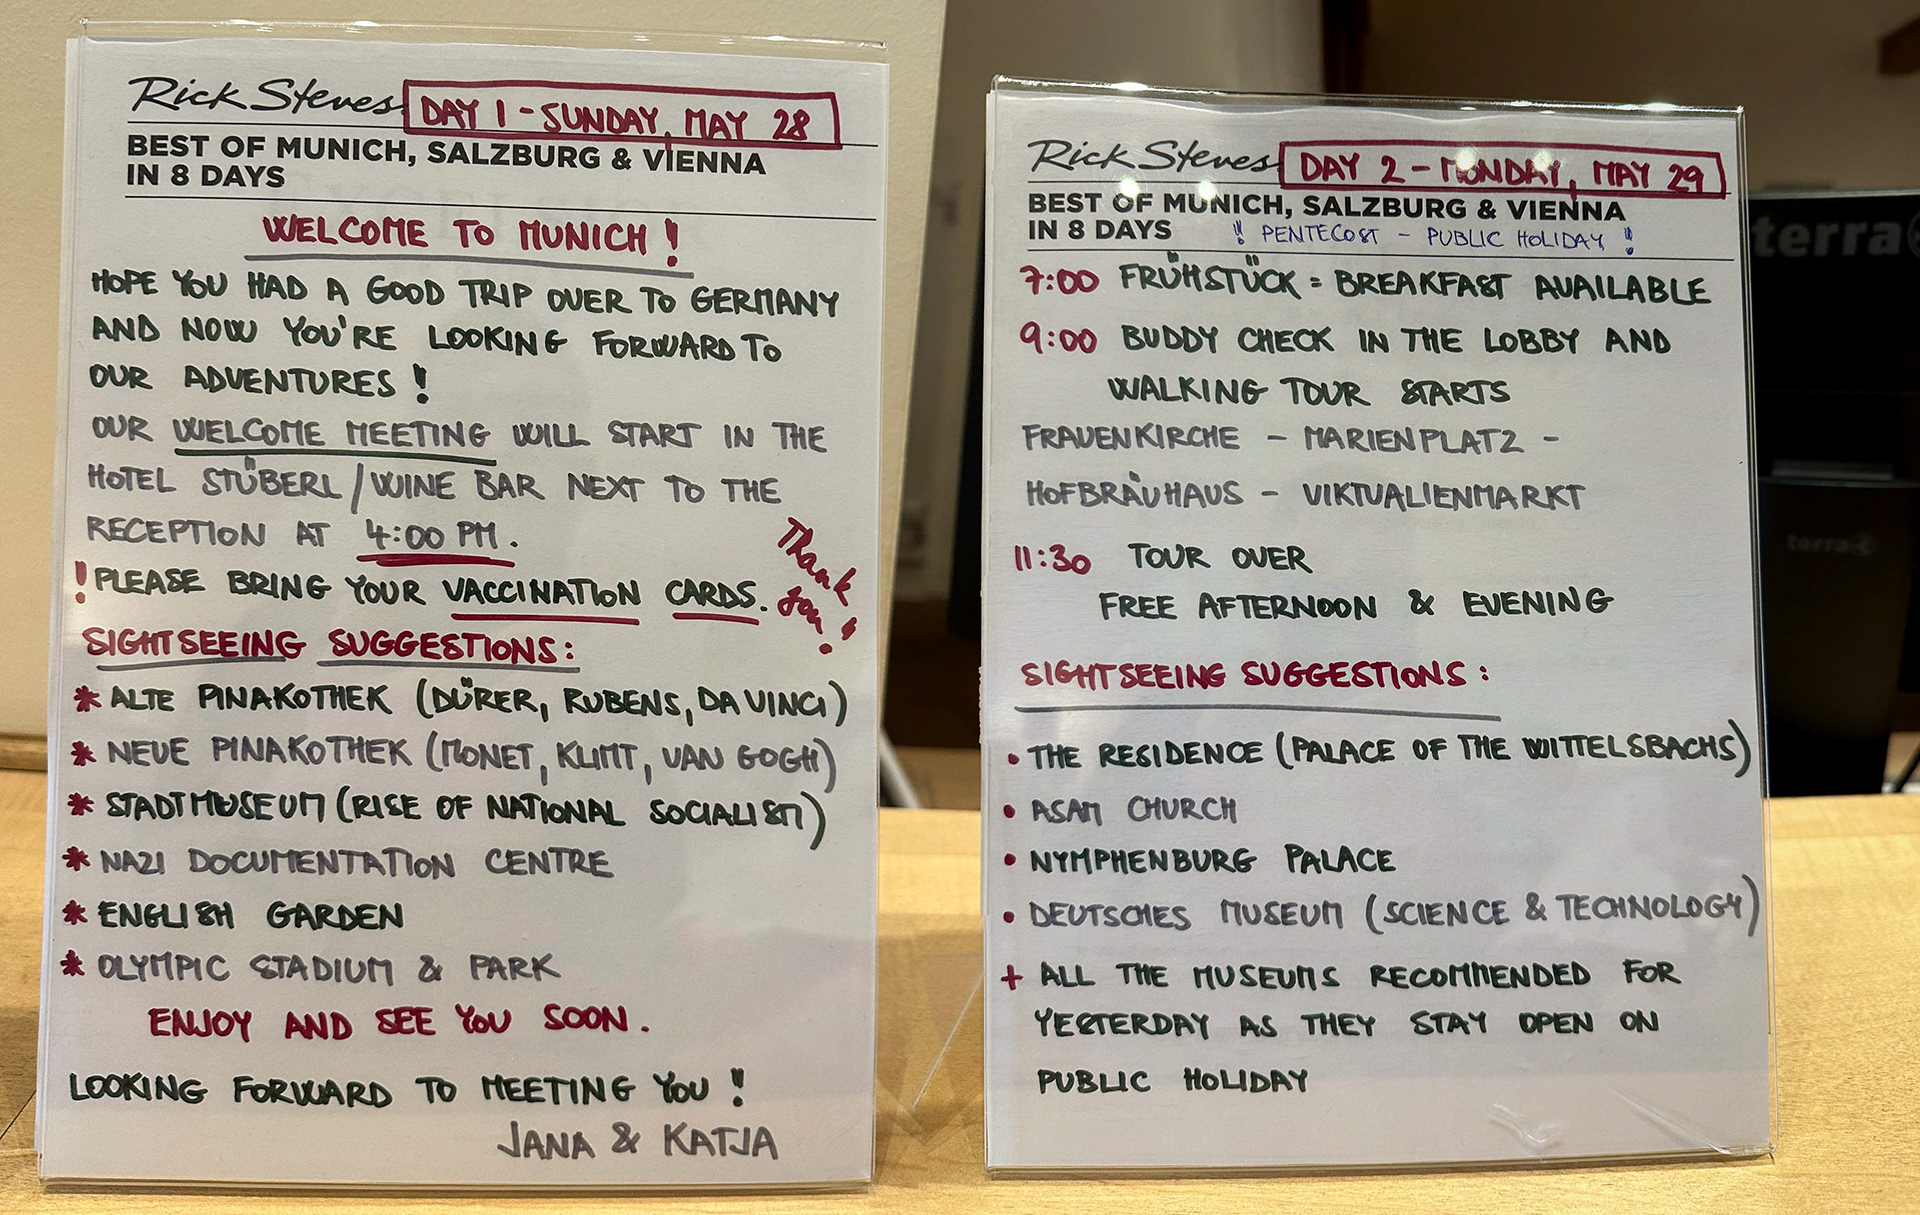 Rick Steves DAY 1 - SUNDAY, MAY 28
BEST OF MUNICH, SALZBURG & VIENNA
IN 8 DAYS
WELCOME TO MUNICH!
HOPE YOU HAD A GOOD TRIP OVER TO GERMANY
AND NOW YOU'RE LOOKING FORWARD TO
OUR ADVENTURES!
OUR WELCOME MEETING WILL START IN THE
HOTEL STÜBERL/WINE BAR NEXT TO THE
RECEPTION AT 4:00 PM.
! PLEASE BRING YOUR VACCINATION CARDS.
Thank
you!
SIGHTSEEING SUGGESTIONS:
* ALTE PINAKOTHEK (DÜRER, RUBENS, DA VINCI)
* NEUE PINAKOTHEK (MONET, KLIMT, VAN GOGH)
* STADTMUSEUM (RISE OF NATIONAL SOCIALISM)
* NAZI DOCUMENTATION CENTRE
* ENGLISH GARDEN
* OLYMPIC STADIUM & PARK
ENJOY AND SEE YOU SOON.
LOOKING FORWARD TO MEETING YOU!
JANA & KATJA
Rick Steves DAY 2 - MONDAY, MAY 29
BEST OF MUNICH, SALZBURG & VIENNA
IN 8 DAYS !! PENTECOST - PUBLIC HOLIDAY !
7:00 FRÜHSTÜCK = BREAKFAST AVAILABLE
9:00 BUDDY CHECK IN THE LOBBY AND
WALKING TOUR STARTS
FRAUENKIRCHE - MARIENPLATZ -
HOFBRÄUHAUS - VIKTUALIENMARKT
11:30 TOUR OVER
FREE AFTERNOON & EVENING
SIGHTSEEING SUGGESTIONS:
• THE RESIDENCE (PALACE OF THE WITTELSBACHS)
• ASAM CHURCH
• NYMPHENBURG PALACE
• DEUTSCHES MUSEUM (SCIENCE & TECHNOLOGY)
+ ALL THE MUSEUMS RECOMMENDED FOR
YESTERDAY AS THEY STAY OPEN ON
PUBLIC HOLIDAY
terra
terra